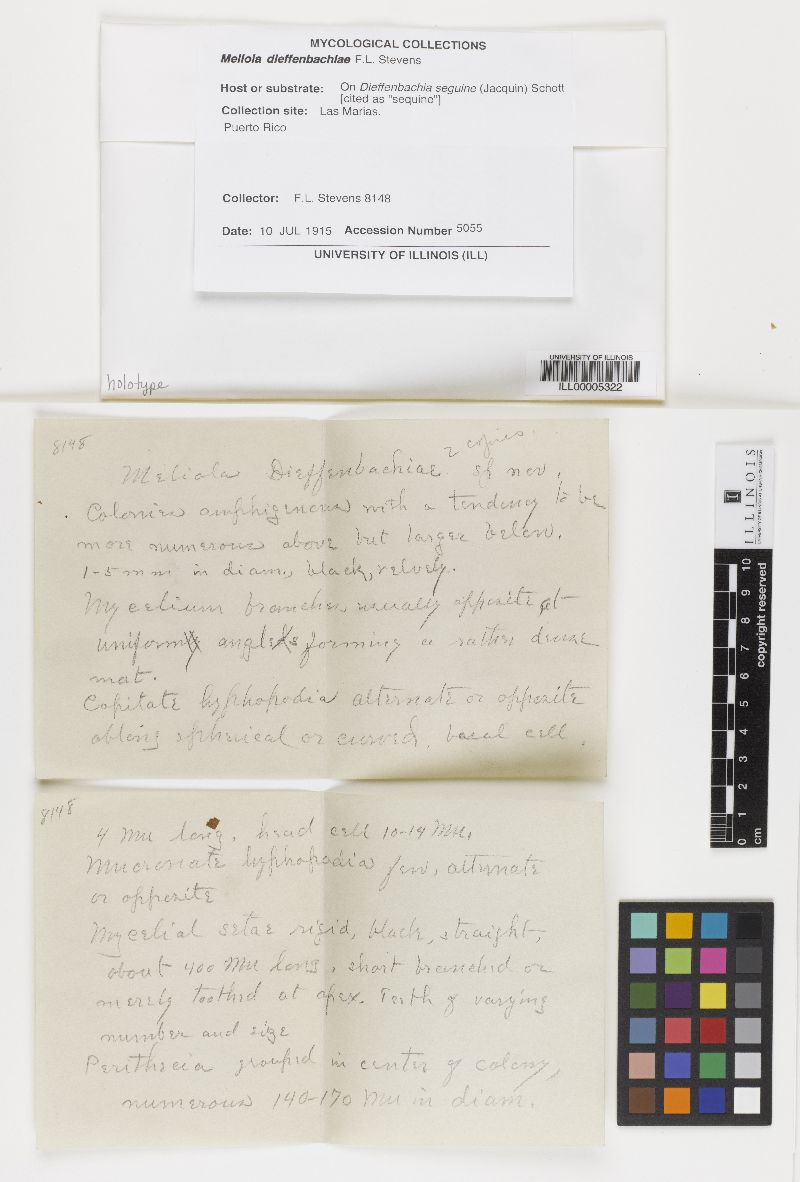 MYCOLOGICAL COLLECTIONS
Meliola dieffenbachiae F.L. Stevens
Host or substrate: On Dieffenbachia seguine (Jacquin) Schott
[cited as "sequine"]
Collection site: Las Marias.
Puerto Rico
Collector: F.L. Stevens 8148
Date: 10 JUL 1915 Accession Number 5055
UNIVERSITY OF ILLINOIS (ILL)
holotype
UNIVERSITY OF ILLINOIS
ILL00005322
8148
2 copies.
Meliola Dieffenbachiae sp nov.
Colonies amphigenous with a tendency to be
more numerous above but larger below.
1-5 mm in diam., black, velvety.
Mycelium branches usually opposite at
uniform angles forming a rather dense
mat.
Capitate hyphopodia alternate or opposite
oblong spherical or curved, basal cell
8148
4 Mu long, head cell 10-14 Mu.
Mucronate hyphopodia few, alternate
or opposite
Mycelial setae rigid, black, straight,
about 400 Mu long, short branched or
merely toothed at apex. Teeth of varying
number and size
Perithecia grouped in center of colony,
numerous 140-170 Mu in diam.
ILLINOIS
copyright reserved
0 1 2 3 4 5 6 7 8 9 10
cm